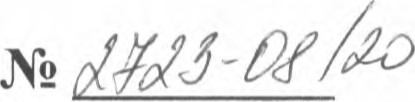 № 2723-08/20